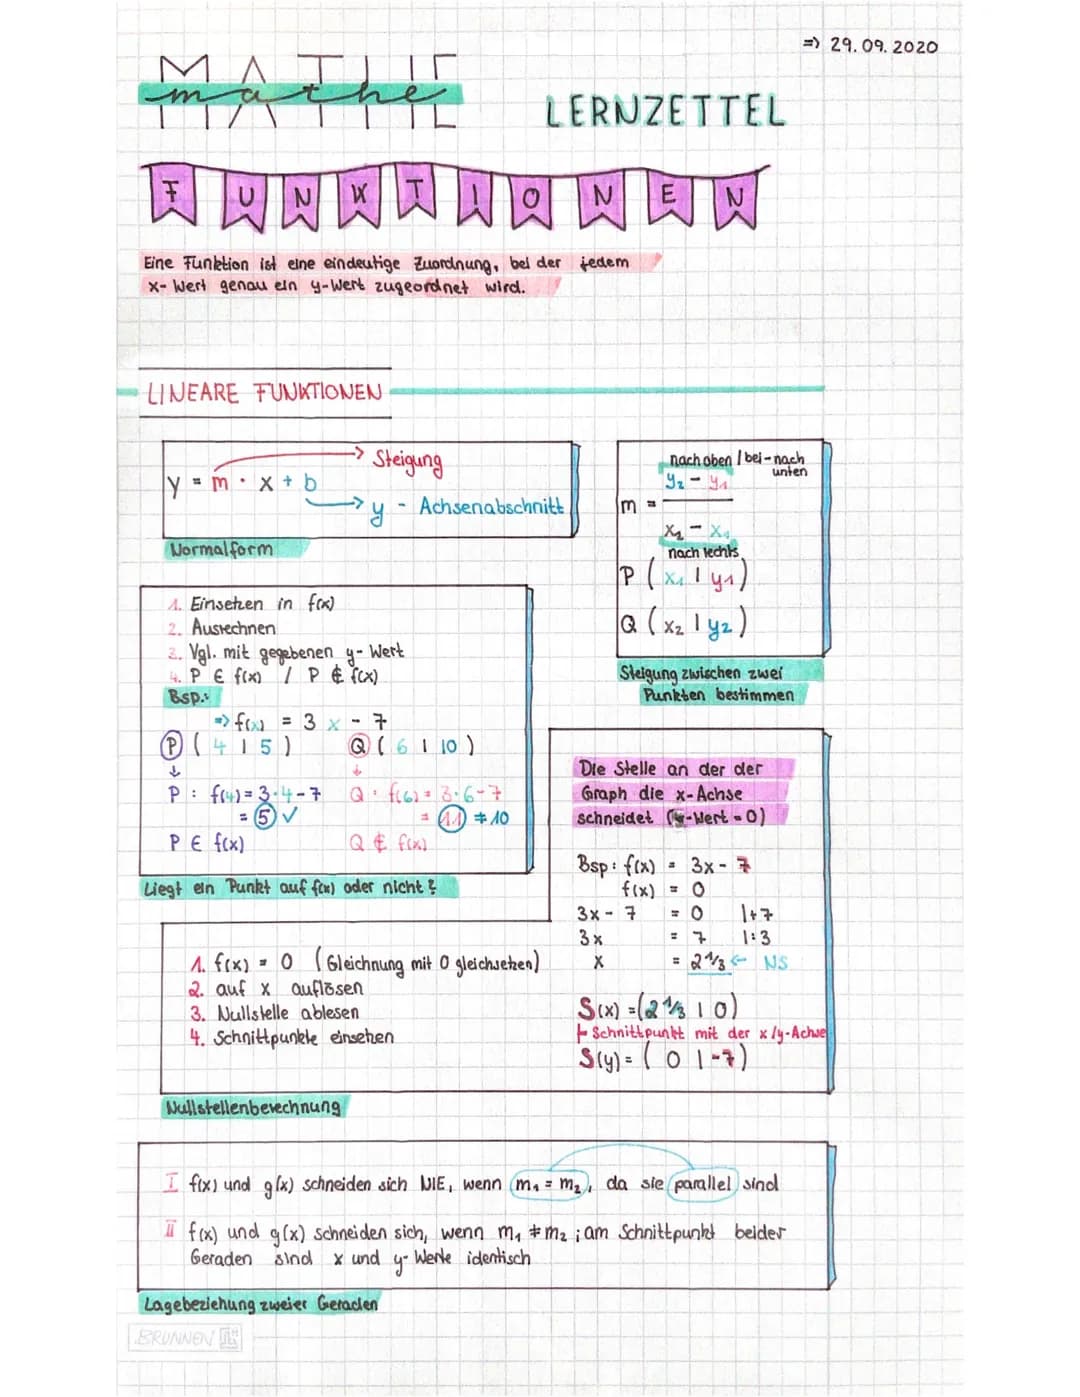 => 29.09.2020
MATHE
mathe
LERNZETTEL
FUNKTIONEN
Eine Funktion ist eine eindeutige Zuordnung, bei der jedem
x-Wert genau ein y-Wert zugeordnet wird.
LINEARE FUNKTIONEN
→ Steigung
y = m · x + b
→ y - Achsenabschnitt
Normalform
nach oben / bei - nach unten
y₂ - y₁
m =
x₂ - x₁
nach rechts
P ( x₁ | y₁ )
Q ( x₂ | y₂ )
Steigung zwischen zwei
Punkten bestimmen
1. Einsetzen in f(x)
2. Ausrechnen
3. Vgl. mit gegebenen y-Wert
4. P ∈ f(x) / P ∉ f(x)
Bsp.:
=> f(x) = 3x - 7
P ( 4 | 5 ) Q ( 6 | 10 )
↓ ↓
P : f(4) = 3·4-7 Q : f(6) = 3·6-7
= 5 ✓ = 11 ≠ 10
P ∈ f(x) Q ∉ f(x)
Liegt ein Punkt auf f(x) oder nicht?
Die Stelle an der der
Graph die x-Achse
schneidet (-Wert = 0)
Bsp: f(x) = 3x - 7
f(x) = 0
3x - 7 = 0 |+7
3x = 7 |:3
x = 2 1/3 ← NS
S(x) = (2 1/3 | 0)
Schnittpunkt mit der x/y-Achse
S(y) = ( 0 | -7)
1. f(x) = 0 (Gleichnung mit 0 gleichsetzen)
2. auf x auflösen
3. Nullstelle ablesen
4. Schnittpunkte einsehen
Nullstellenberechnung
I f(x) und g(x) schneiden sich NIE, wenn m₁ = m₂, da sie parallel sind
II f(x) und g(x) schneiden sich, wenn m₁ ≠ m₂ ; am Schnittpunkt beider
Geraden sind x und y-Werte identisch
Lagebeziehung zweier Geraden
BRUNNEN